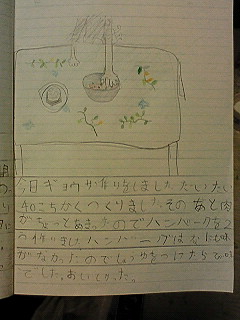 今日ギョウザ作りをしました だいたい
和こちなくつくりました。そのあと肉
がちょっとあまったのでハンバーグを2
つ作りました ハンバーグはなにも味
がなかったのでしょうゆをつけたら
でした。おいしかった。